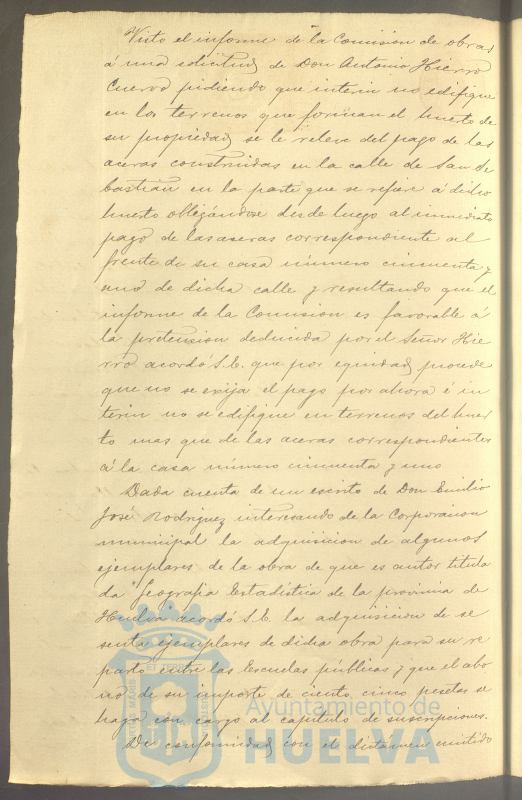 Visto el informe de la Comision de obras
á una solicitud de Don Antonio Hierro
Cuervo pidiendo que interin no edifique
en los terrenos que forman el huerto de
su propiedad se le releve del pago de las
aceras construidas en la calle de San Se
bastian en la parte que se refiere á dicho
huerto obligándose desde luego al inmediato
pago de las aseras correspondiente al
frente de su casa número cincuenta y
uno de dicha calle y resultando que el
informe de la Comision es favorable á
la pretension deducida por el Señor Hie
rro acordó S.E. que por equidad procede
que no se exija el pago por ahora é in
terin no se edifique en terrenos del huer
to mas que de las aceras correspondientes
á la casa número cincuenta y uno
Dada cuenta de un escrito de Don Emilio
José Rodriguez interesando de la Corporacion
municipal la adquisicion de algunos
ejemplares de la obra de que es autor titula
da "Geografia Estadística de la provincia de
Huelva" acordó S.E. la adquisicion de se
senta ejemplares de dicha obra para su re
parto entre las Escuelas públicas y que el abo
no de su importe de ciento cinco pesetas se
haga con cargo al capítulo de suscripciones.
De conformidad con el dictámen emitido
Ayuntamiento de
HUELVA